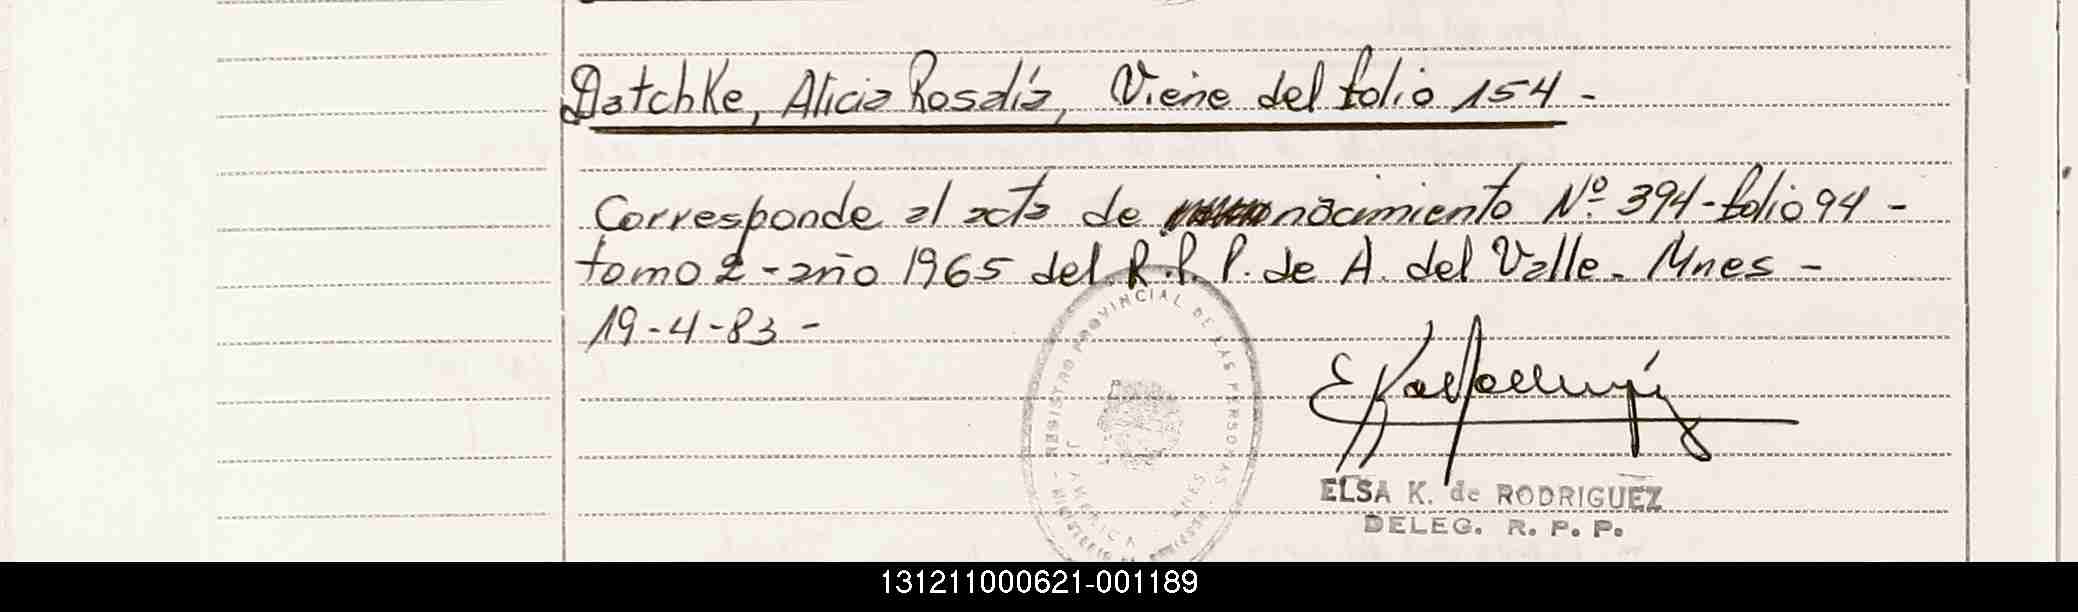 Datchke, Alicia Rosalía, Viene del folio 154 -
Corresponde al acta de nacimiento Nº 394 - folio 94 -
tomo 2 - año 1965 del R.P.P. de A. del Valle - Mnes -
19-4-83 -
REGISTRO PROVINCIAL DE LAS PERSONAS
ELSA K. de RODRIGUEZ
DELEG. R. P. P.
131211000621-001189